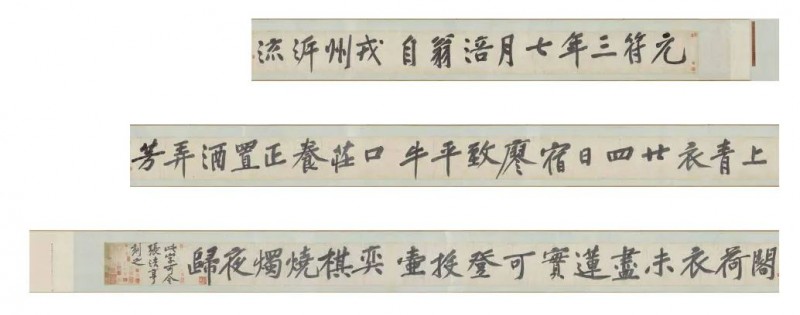 元符三年七月涪翁自戎州泝流
上青衣廿四日宿廖致平牛口莊養正置酒弄芳
閣荷衣未盡蓮實可登投壺弈棋燒燭夜歸
此字可令
張法亨
刻之